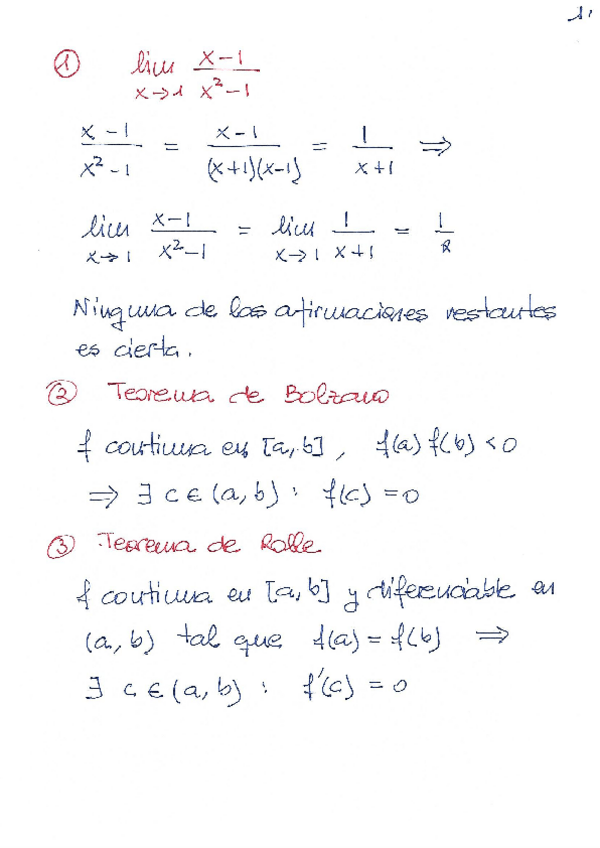 1.
① lim x→1 (x-1)/(x²-1)
(x-1)/(x²-1) = (x-1)/((x+1)(x-1)) = 1/(x+1) ⇒
lim x→1 (x-1)/(x²-1) = lim x→1 1/(x+1) = 1/2
Ninguna de las afirmaciones restantes
es cierta.
② Teorema de Bolzano
f continua en [a,b], f(a)f(b)<0
⇒ ∃ c ∈ (a,b) : f(c) = 0
③ Teorema de Rolle
f continua en [a,b] y diferenciable en
(a,b) tal que f(a) = f(b) ⇒
∃ c ∈ (a,b) : f'(c) = 0